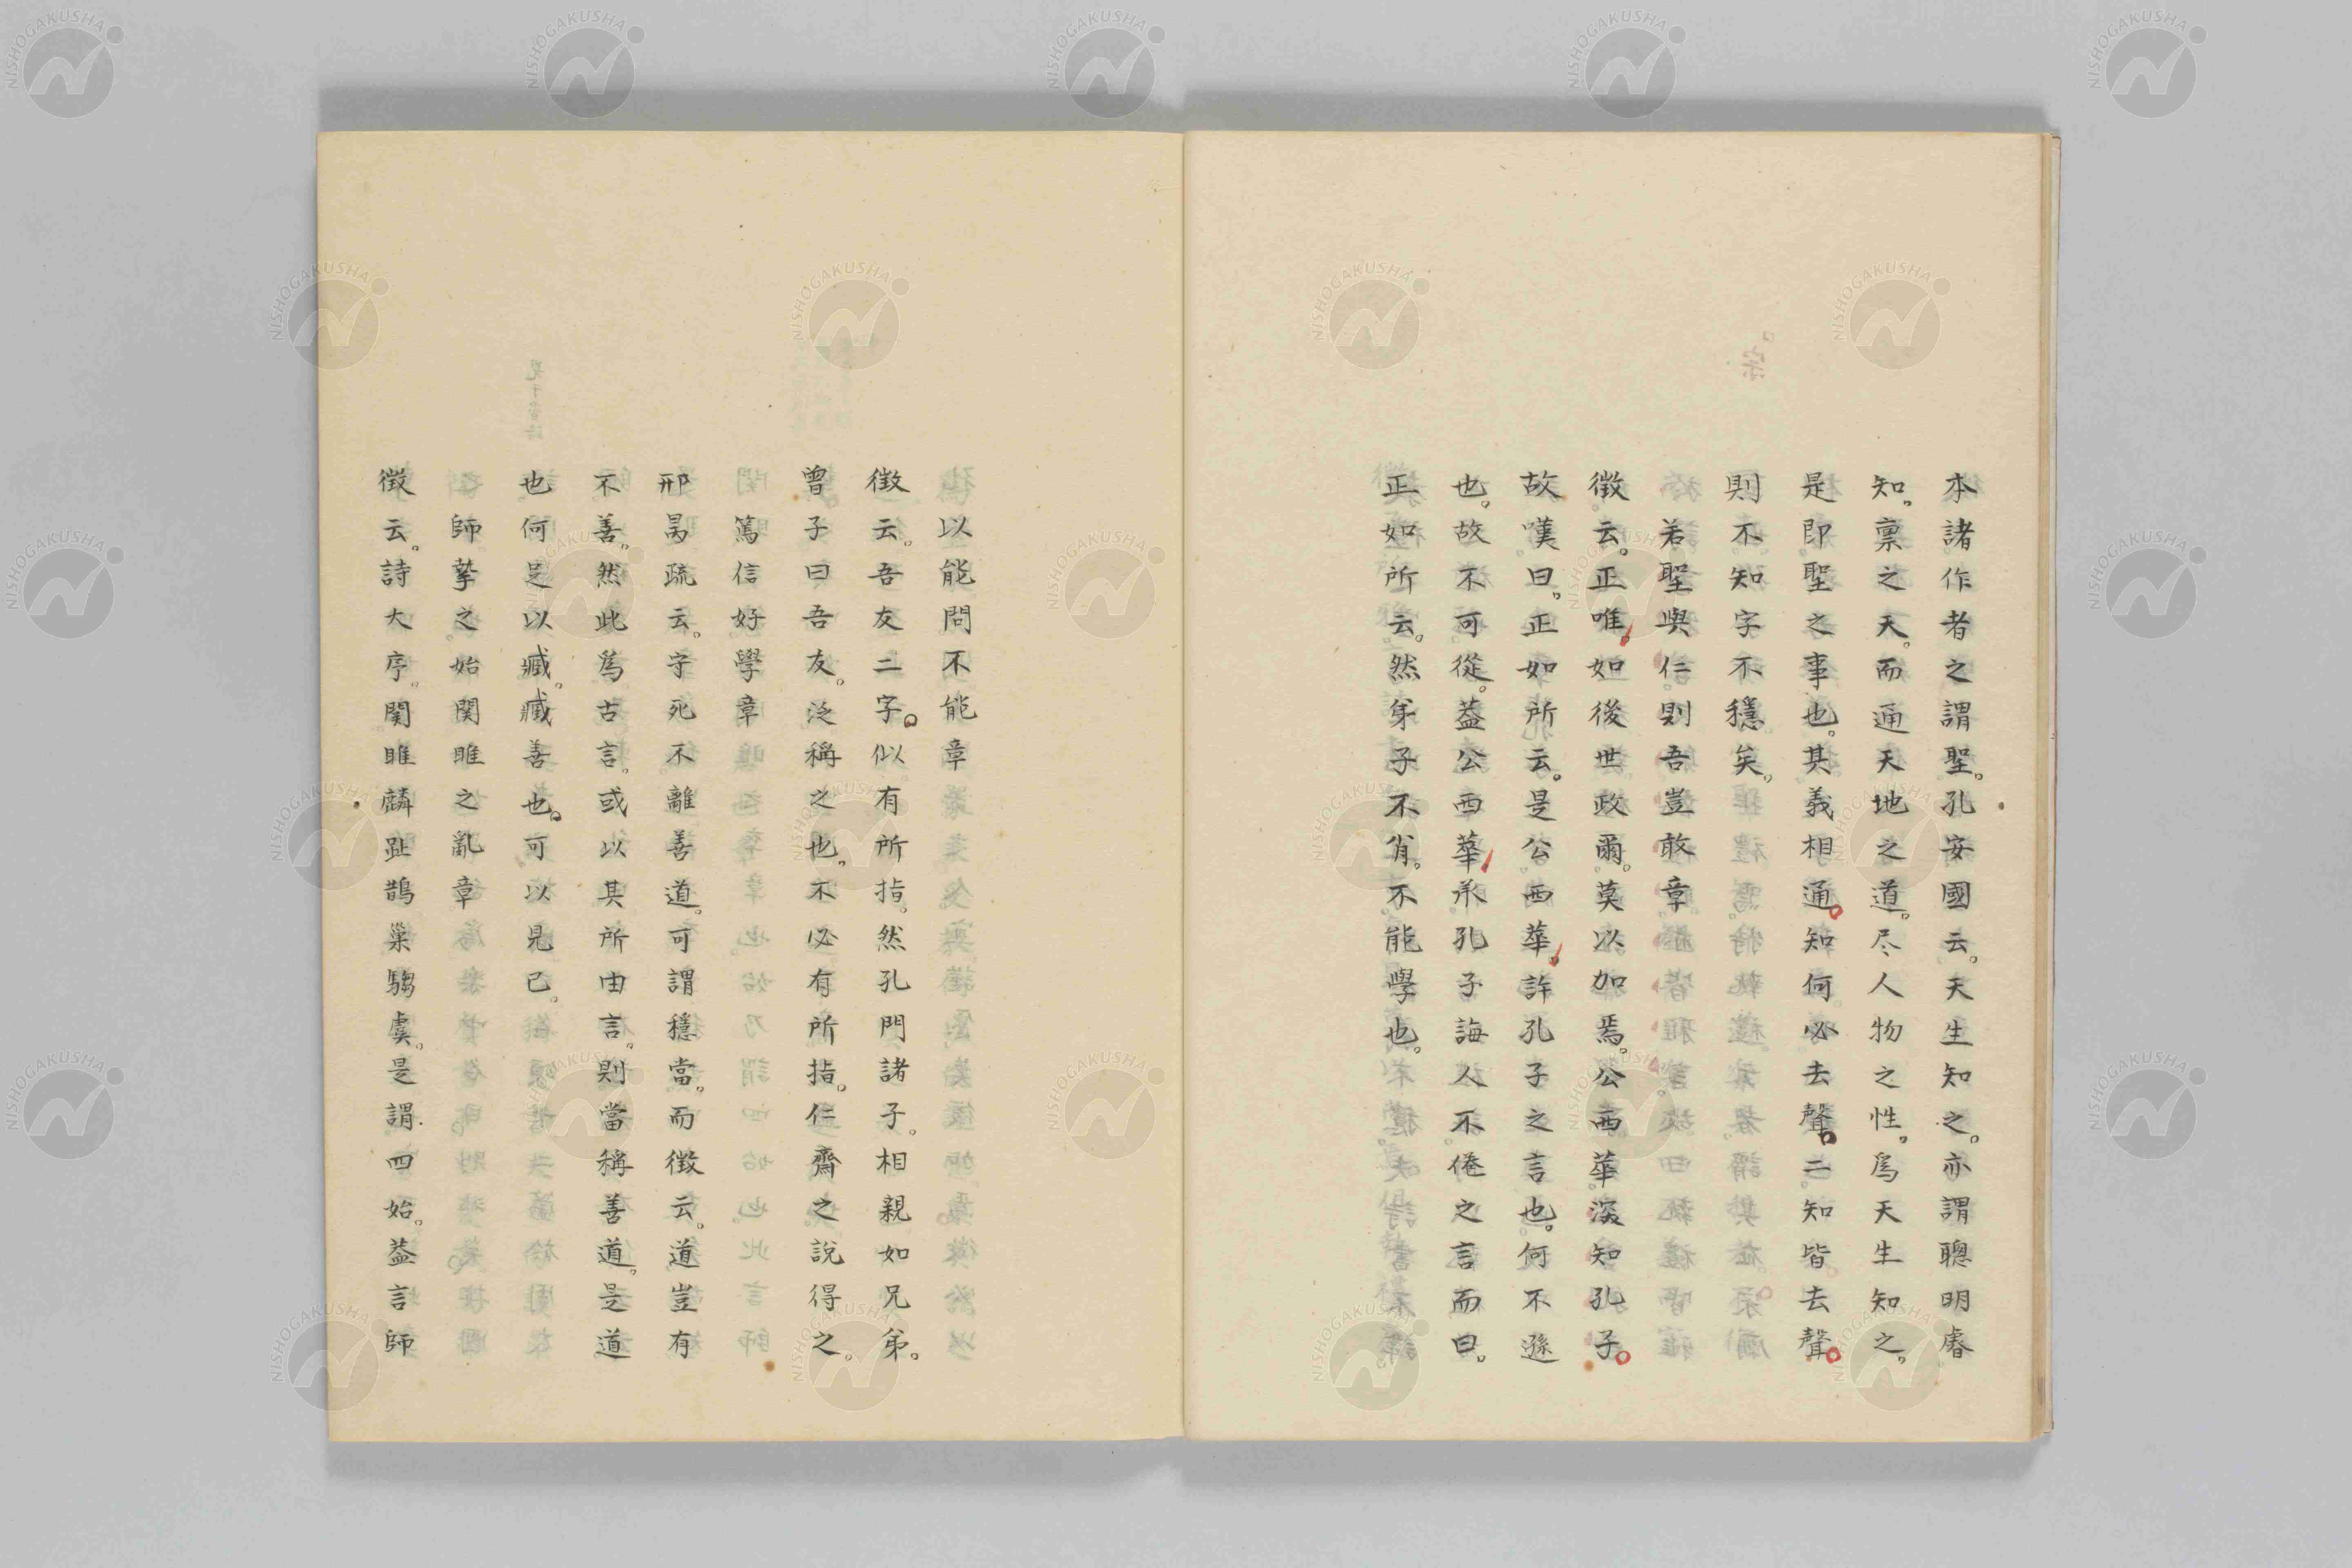 本諸作者之謂聖。孔安國云。天生知之。亦謂聰明睿
知。禀之天。而通天地之道。尽人物之性。爲天生知之。
是即聖之事也。其義相通。知何必去聲。二知皆去聲。
則不知字不穩矣。
若聖與仁則吾豈敢章
徵云。正唯如後世政爾。莫以加焉。公西華深知孔子。
故嘆曰。正如所云。是公西華許孔子之言也。何不遜
也。故不可從。葢公西華承孔子誨人不倦之言而曰。
正如所云。然弟子不肖。不能學也。
以能問不能章
徵云。吾友二字。似有所指。然孔門諸子。相親如兄弟。
曾子曰吾友。泛稱之也。不必有所指。仁齋之說得之。
篤信好學章
邢昺疏云。守死不離善道。可謂穩當。而徵云。道豈有
不善。然此爲古言。或以其所由言。則當稱善道。是道
也何足以臧。臧善也。可以見已。
師摯之始関雎之亂章
徵云。詩大序。関雎麟趾鵲巢騶虞。是謂四始。葢言師
NISHOGAKUSHA